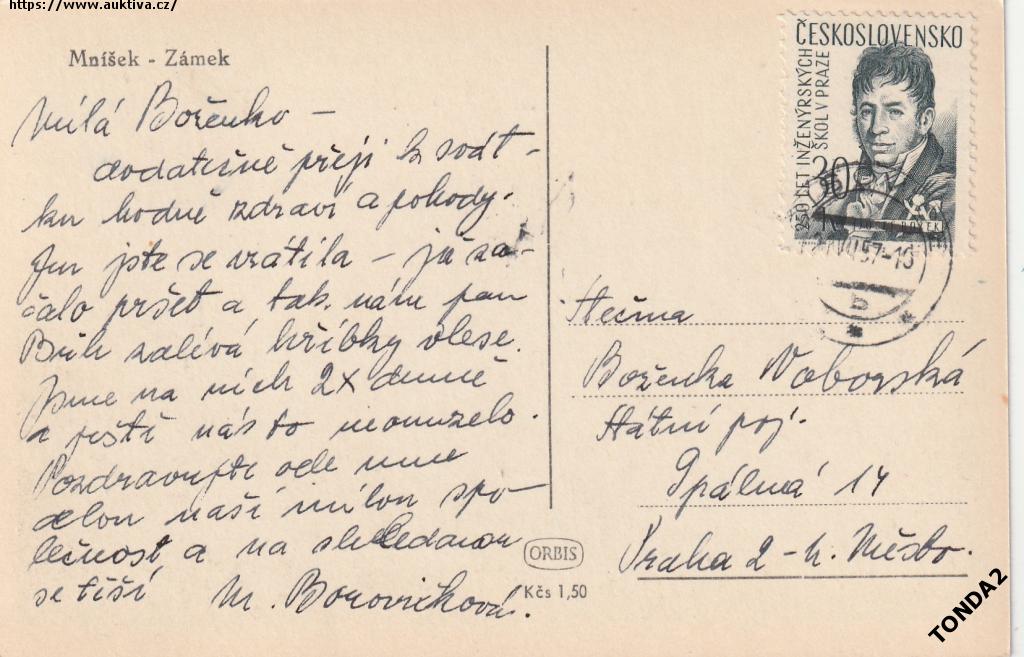 https://www.auktiva.cz/
Mníšek - Zámek
Milá Boženko –
dodatečně přeji k svát-
ku hodně zdraví a pohody.
Jen jste se vrátila – já za-
čalo pršet a tak nám pan
Bůh zalívá hříbky v lese.
Jsme na nich 2x denně
a ještě nás to neomrzelo.
Pozdravujte ode mne
celou naší milou spo-
lečnost a na shledanou
se těší
M. Borovičková.
ČESKOSLOVENSKO
250 LET INŽENÝRSKÝCH
ŠKOL V PRAZE
30
57-10
b
Slečna
Boženka Voborská
Státní poj.
Spálená 14
Praha 2 - N. Město.
ORBIS
Kčs 1,50
TONDA2